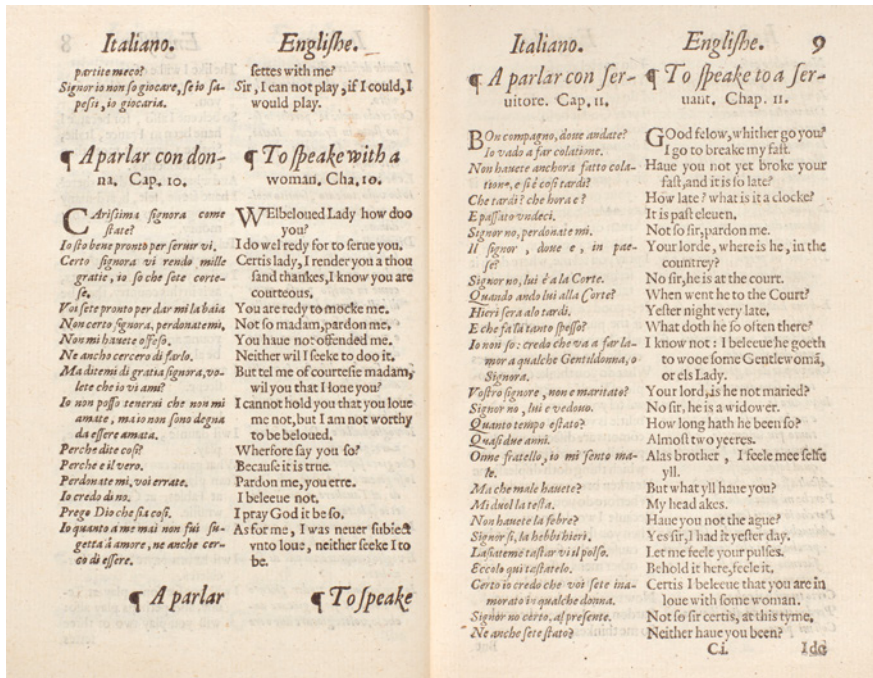 Italiano.
partite meco?
Signor io non ſo giocare, ſe io ſa-
peſsi, io giocaria.
¶ A parlar con don-
na. Cap. 10.
CAriſsima ſignora come
ſtate?
Io ſto bene pronto per ſeruir vi.
Certo ſignora vi rendo mille
gratie, io ſo che ſete corte-
ſe.
Voi ſete pronto per dar mi la baia
Non certo ſignora, perdonatemi,
Non mi hauete offeſo.
Ne ancho cercero di farlo.
Ma ditemi di gratia ſignora, vo-
lete che io vi ami?
Io non poſſo tenerui che non mi
amate, ma io non ſono degna
da eſſere amata.
Perche dite coſi?
Perche e il vero.
Perdonate mi, voi errate.
Io credo di no.
Prego Dio che ſia coſi.
Io quanto a me mai non fui ſu-
getta à amore, ne anche cer-
co di eſſere.
¶ A parlar
Engliſhe.
ſettes with me?
Sir, I can not play, if I could, I
would play.
¶ To ſpeake with a
woman. Cha. 10.
WElbeloued Lady how doo
you?
I do wel redy for to ſerue you.
Certis lady, I render you a thou
ſand thankes, I know you are
courteous.
You are redy to mocke me.
Not ſo madam, pardon me.
You haue not offended me.
Neither wil I ſeeke to doo it.
But tel me of courteſie madam,
wil you that I loue you?
I cannot hold you that you loue
me not, but I am not worthy
to be beloued.
Wherfore ſay you ſo?
Becauſe it is true.
Pardon me, you erre.
I beleeue not.
I pray God it be ſo.
As for me, I was neuer ſubiect
vnto loue, neither ſeeke I to
be.
¶ To ſpeake
Italiano.
¶ A parlar con ſer-
uitore. Cap. 11.
BOn compagno, doue andate?
Io vado a far colatime.
Non hauete anchora fatto cola-
tione, e ſi è coſi tardi?
Che tardi? che hora e?
E paſſato vndeci.
Signor no, perdonate mi.
Il ſignor, doue e, in pae-
ſe?
Signor no, lui è a la Corte.
Quando ando lui alla Corte?
Hieri ſera alo tardi.
E che fa là tanto ſpeſſo?
Io non ſo: credo che va a far la-
mor a qualche Gentildonna, o
Signora.
Voſtro ſignore, non e maritato?
Signor no, lui e vedouo.
Quanto tempo eſtato?
Quaſi due anni.
Oime fratello, io mi ſento ma-
le.
Ma che male hauete?
Mi duol la teſta.
Non hauete la febre?
Signor ſi, la hebbi hieri.
Laſciateme taſtar vi il polſo.
Eccolo qui taſtatelo.
Certo io credo che voi ſete ina-
morato in qualche donna.
Signor no certo, al preſente.
Ne anche ſete ſtato?
Engliſhe. 9
¶ To ſpeake to a ſer-
uant. Chap. 11.
GOod felow, whither go you?
I go to breake my faſt.
Haue you not yet broke your
faſt, and it is ſo late?
How late? what is it a clocke?
It is paſt eleuen.
Not ſo ſir, pardon me.
Your lorde, where is he, in the
countrey?
No ſir, he is at the court.
When went he to the Court?
Yeſter night very late.
What doth he ſo often there?
I know not: I beleeue he goeth
to wooe ſome Gentlewomã,
or els Lady.
Your lord, is he not maried?
No ſir, he is a widower.
How long hath he been ſo?
Almoſt two yeeres.
Alas brother, I feele mee ſelfe
yll.
But what yll haue you?
My head akes.
Haue you not the ague?
Yes ſir, I had it yeſter day.
Let me feele your pulſes.
Behold it here, feele it.
Certis I beleeue that you are in
loue with ſome woman.
Not ſo ſir certis, at this tyme.
Neither haue you been?
C i. I do